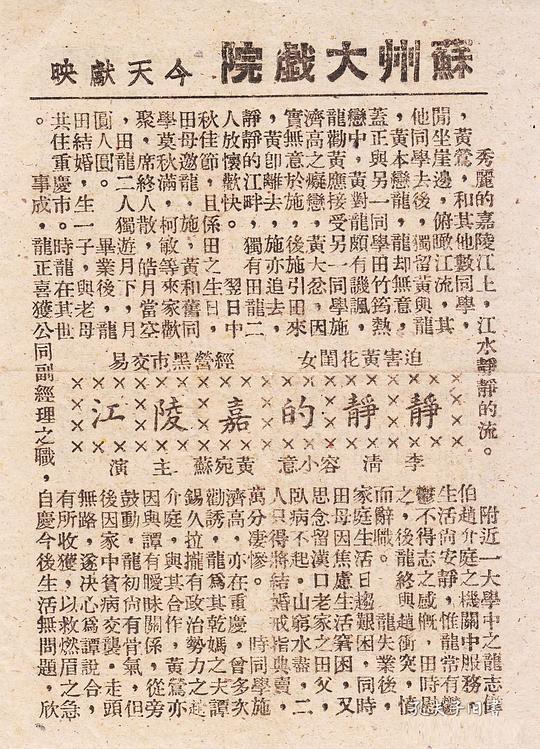 蘇州大戲院 今天獻映
秀麗的嘉陵江上,江水靜靜的流。 附近一大學中之龍志偉
,黃鶯,和其他數同學,
閒坐崖邊,俯瞰江流,其
他同學去後,獨留黃與龍
,黃本戀龍,龍却無意,
蓋正與另一同學田竹筠熱
戀中,黃對龍頗有譏諷,
龍勸黃應接受另一同學施
濟高之癡戀,黃大忿,因
實無意於施,後施引田來
,黃卽離去,施亦追去,
靜靜的江畔,獨有田龍二
人放懷歡快。 翌日中
秋佳節,且係田之生日,
田母邀龍、施、黃和舊同
學莫秋滿、柯敏等來家歡
聚,席終人散,皓月當空
,田龍二人獨遊月下,月
圓人圓。 畢業後,龍
田結婚,生一子,與老母
共住重慶市。時龍在其世
迫害黃花閨女 經營黑市交易
靜靜的嘉陵江
李清 容小意 黃宛蘇 主演
伯趙介庭之機關中服務,
生活尚安靜,惟龍常有
鬱不得志之感慨,田時慰
之,後龍終與趙衝突,憤
而辭職。 龍失業後,
家庭生活日趨艱困,同時
田母因焦慮生活窘困,又
思念留漢口老家之田父,
臥病不起。山窮水盡,二
人只得將結婚戒指典賣,
萬分凄慘。 時同學施
濟高,亦在重慶,曾多次
勸誘,龍爲其乾媽之夫譚
錫久拉攏有政治勢力之趙
介庭,與其合作,黃鶯亦
因與譚有曖昧關係,從旁
鼓動,龍初尚有骨氣,但
後因家中貧病交襲,走頭
無路,遂決心爲譚說合,
有所收獲,以救燃眉之急
。 事成,龍正喜獲公司副經理之職,自慶今後生活無問題,欣
孔夫子旧书